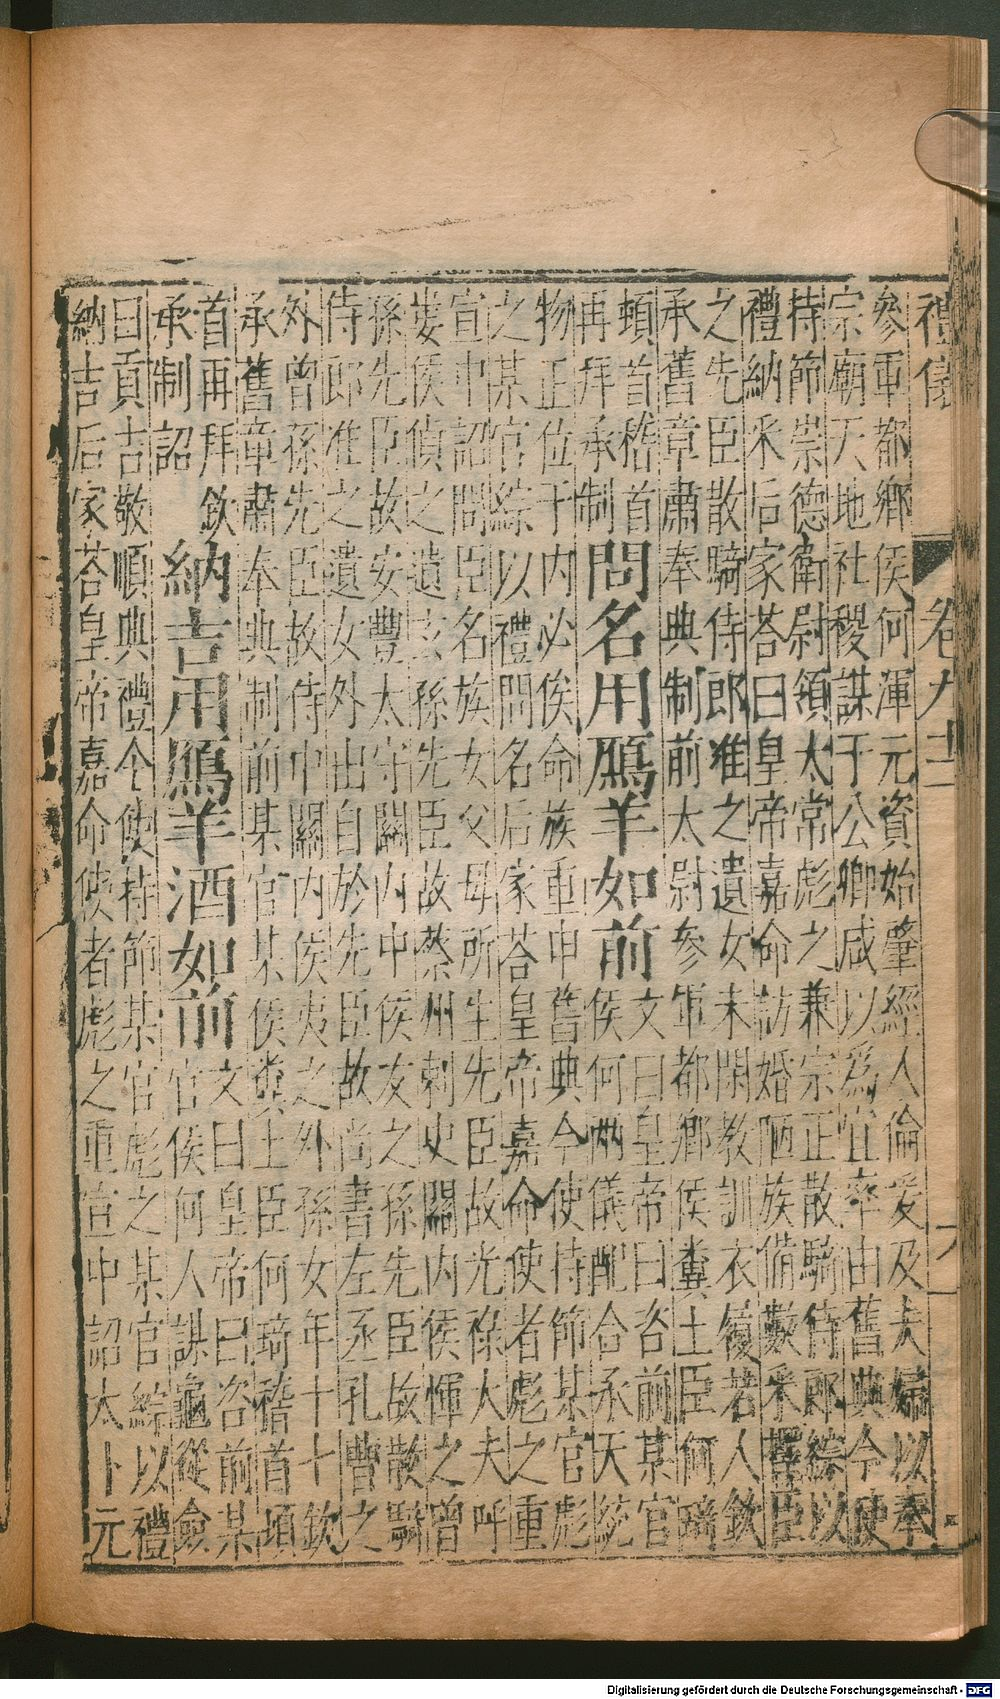 禮儀 卷九十二
參軍都鄉侯何渾元資始肇經人倫爰及夫婦以奉
宗廟天地社稷謀于公卿咸以爲宜率由舊典今使
持節崇德衛尉領太常彪之兼宗正散騎侍郎綜以
禮納采后家荅曰皇帝嘉命訪婚陋族備數采擇臣
之先臣散騎侍郎准之遺女未閑教訓衣履若人欽
承舊章肅奉典制前太尉參軍都鄉侯糞土臣何琦
頓首稽首
再拜承制
問名用鴈羊如前
文曰皇帝曰咨前某官
侯何兩儀配合承天統
物正位于内必俟命族重申舊典今使持節某官彪
之某官綜以禮問名后家荅皇帝嘉命使者彪之重
宣中詔問臣名族女父母所生先臣故光祿大夫呼
婁侯偵之遺玄孫先臣故蔡州刺史關内侯惲之曾
孫先臣故安豐太守關内中侯友之孫先臣故散騎
侍郎准之遺女外出自於先臣故尚書左丞孔曹之
外曾孫先臣故侍中關内侯夷之外孫女年十十欽
承舊章肅奉典制前某官某侯糞土臣何琦稽首頓
首再拜欽
承制詔
納吉用鴈羊酒如前
文曰皇帝曰咨前某
官侯何人謀龜從僉
曰貞吉敬順典禮今使持節某官彪之某官綜以禮
納吉后家荅皇帝嘉命使者彪之重宣中詔太卜元
Digitalisierung gefördert durch die Deutsche Forschungsgemeinschaft - DFG